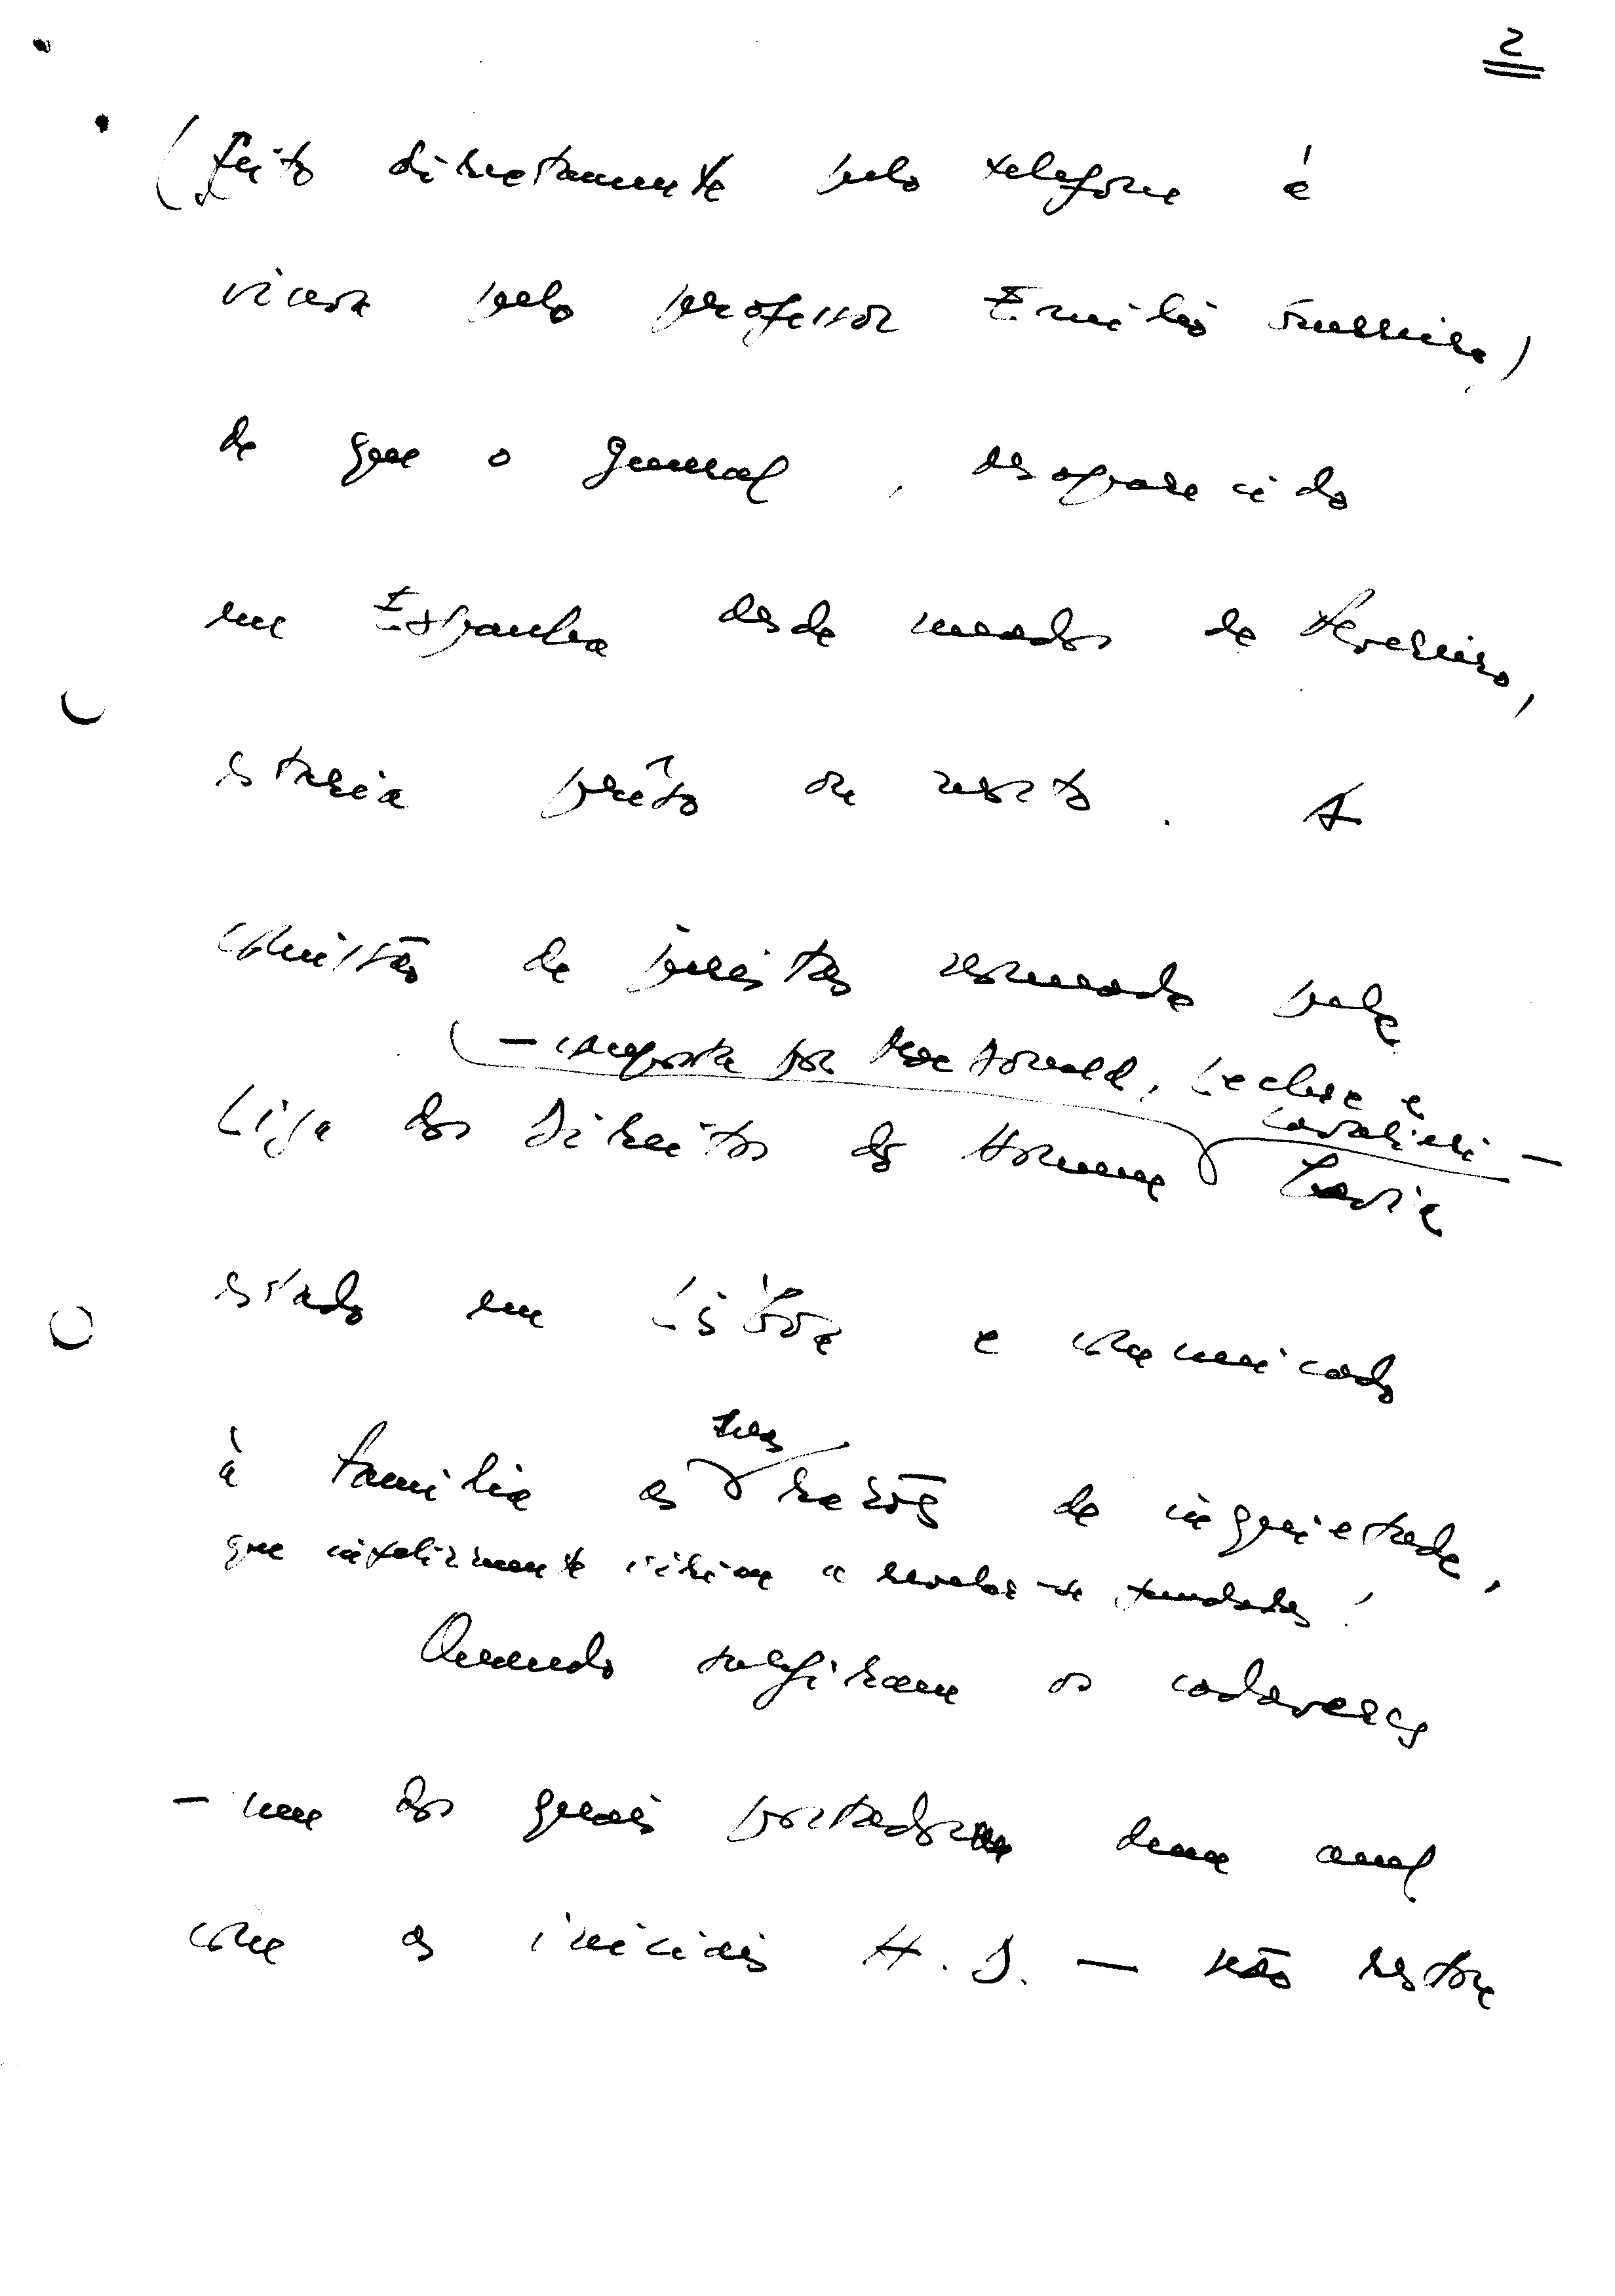 2
(feito directamente pelo telefone à
viuva pelo professor Emílio Guerreiro)
de que o general, desaparecido
em Espanha desde meados de Fevereiro,
estaria prêso ou morto. A
comissão de juristas nomeada pela
— composta por Mac Donald, Leclerc e
Cavalieri —
Liga dos Direitos do Homem havia
estado em Lisboa e comunicado
à família as suas razões de inquietude,
que infelizmente viriam a revelar-se fundadas!
Quando surgiram os cadaveres
— um dos quais portador duma anel
com as iniciais H. D. — não restou